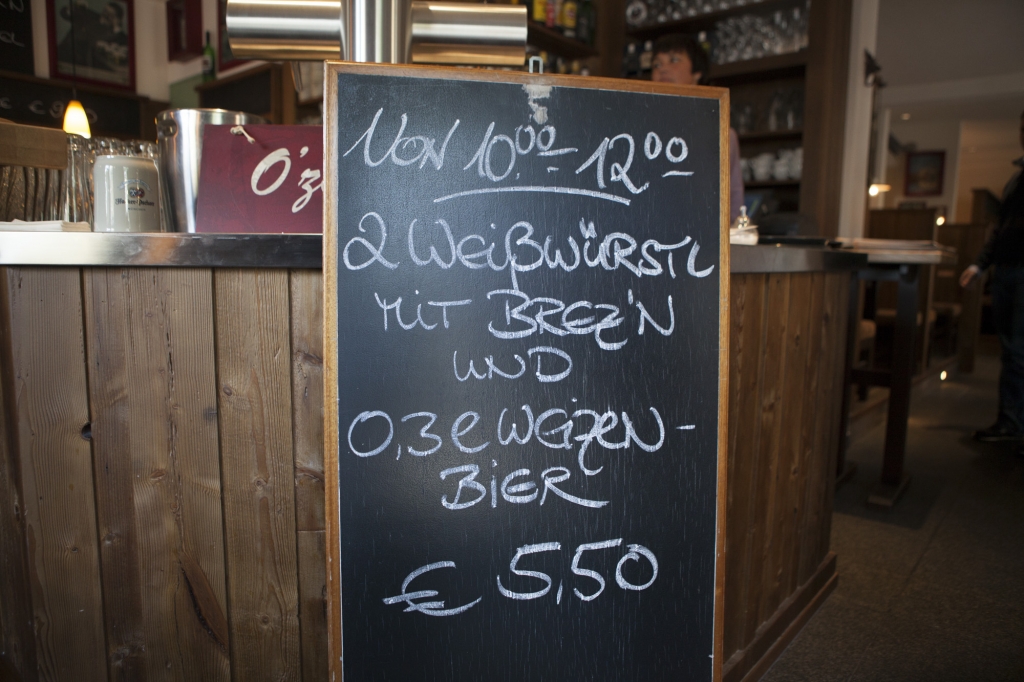 VON 10⁰⁰-12⁰⁰
2 WEIßWÜRSTL
MIT BREZ'N
UND
0,3ℓ WEIZEN-
BIER
€ 5,50
O'z